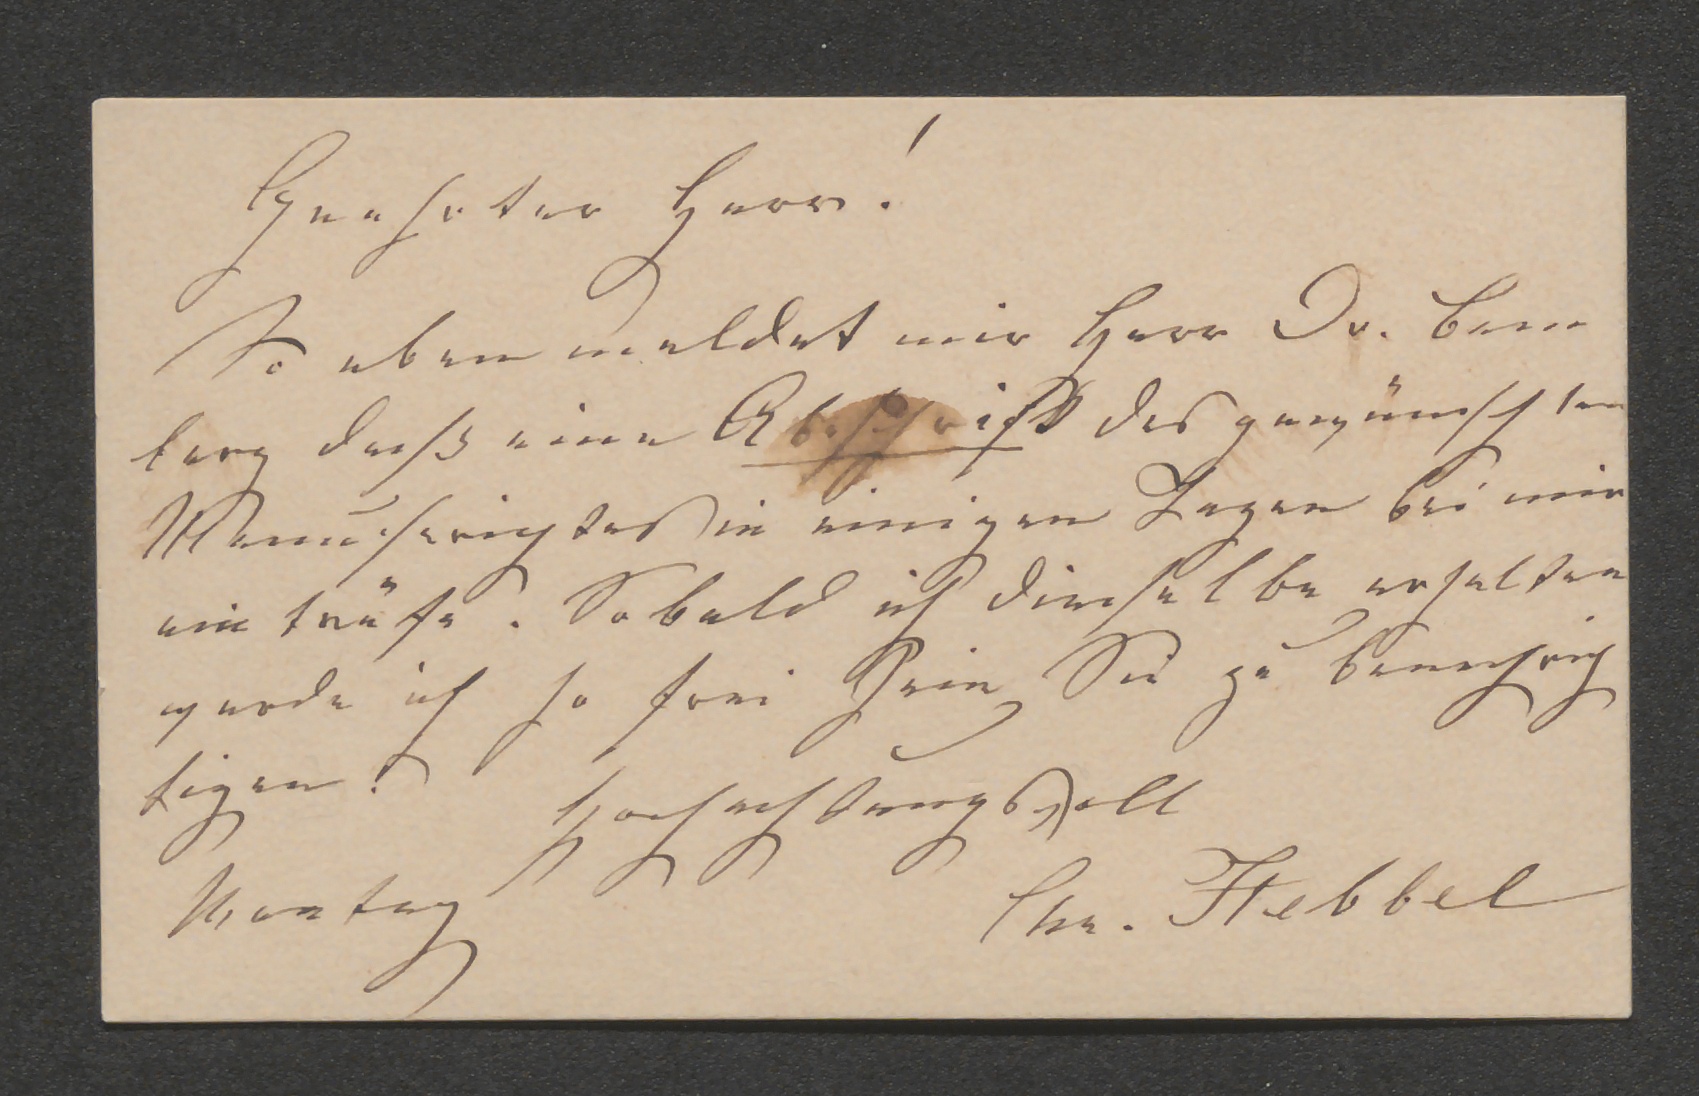 Geehrter Herr!
So eben meldet mir Herr Dr. Bam
berg dass eine Abschrift des gewünschten
Manuscriptes in einigen Tagen bei mir
ein träfe. Sobald ich dieselbe erhalten
werde ich so frei sein Sie zu benachrich
tigen!
Hochachtungsvoll
Montag Chr. Hebbel